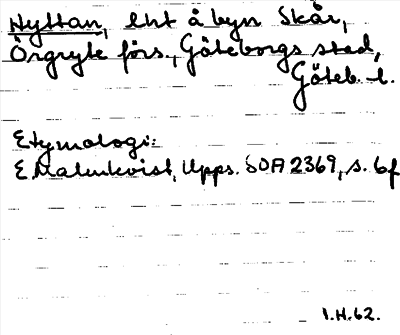 Hyttan, lht å byn Skår,
Örgryte förs., Göteborgs stad,
Göteb. l.
Etymologi:
E Malmkvist, Upps. SOA 2369, s. 6f
I.H.62.